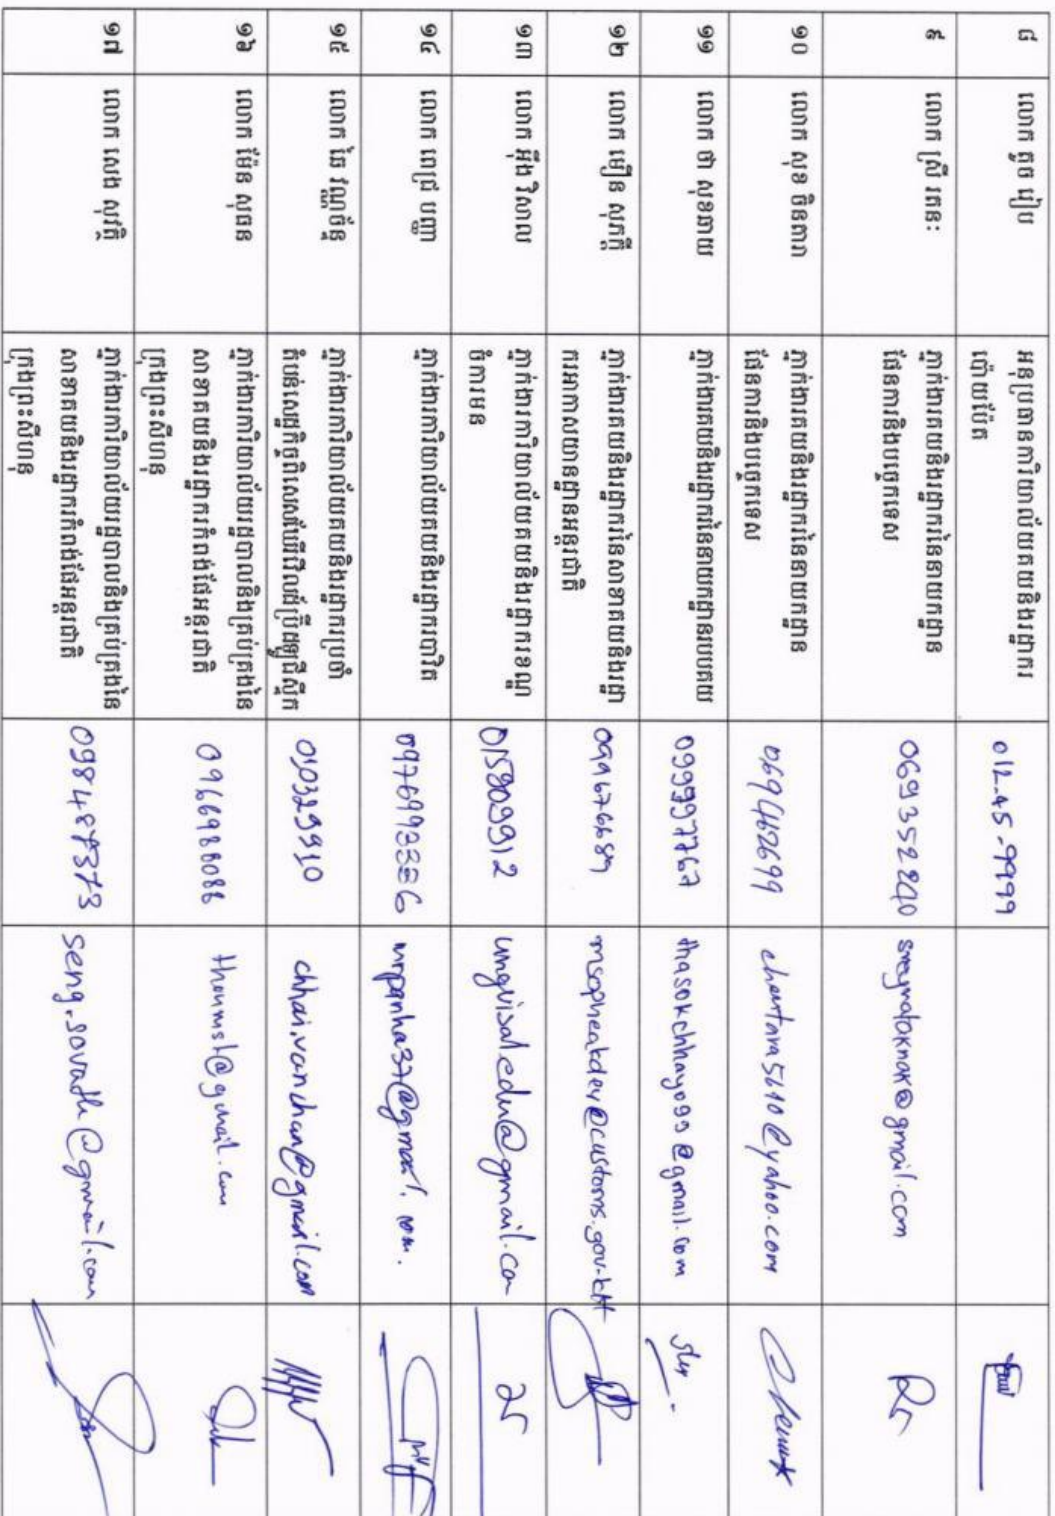 ៨
លោក គួច រៀប
អនុប្រធានការិយាល័យគយនិងរដ្ឋាករ
ប៉ោយប៉ែត
012-45-9999
៩
លោក ស្រី រតនៈ
ភ្នាក់ងារគយនិងរដ្ឋាករនៃនាយកដ្ឋាន
ផែនការនិងបច្ចេកទេស
069352240
១០
លោក សុខ ចិនតារា
ភ្នាក់ងារគយនិងរដ្ឋាករនៃនាយកដ្ឋាន
ផែនការនិងបច្ចេកទេស
069462699
១១
លោក ថា សុខឆាយ
ភ្នាក់ងារគយនិងរដ្ឋាករនៃនាយកដ្ឋានរបបគយ
099997767
thasokchhay099@gmail.com
១២
លោក មឿន សុភក្ដិ
ភ្នាក់ងារគយនិងរដ្ឋាករនៃសាខាគយនិងរដ្ឋា
ករអាកាសយានដ្ឋានអន្តរជាតិ
msopheakdey@customs.gov.kh
១៣
លោក អ៊ឹង វិសាល
ភ្នាក់ងារការិយាល័យគយនិងរដ្ឋាករខណ្ឌ
ចំការមន
015809912
ungvisal.edu@gmail.com
១៤
លោក ពេជ្រ បញ្ញា
ភ្នាក់ងារការិយាល័យគយនិងរដ្ឋាករបាវិត
១៥
លោក ឆៃ វណ្ណច័ន្ទ
ភ្នាក់ងារការិយាល័យគយនិងរដ្ឋាករប្រចាំ
តំបន់សេដ្ឋកិច្ចពិសេសវើលដ៍ប្រ៊ីដឡូជីស្ទីក
010329910
chhai.vanchan@gmail.com
១៦
លោក ម៉ែន សុធន
ភ្នាក់ងារការិយាល័យរដ្ឋបាលនិងគ្រប់គ្រងនៃ
សាខាគយនិងរដ្ឋាករកំពង់ផែអន្តរជាតិ
ក្រុងព្រះសីហនុ
0966988088
thonmsl@gmail.com
១៧
លោក សេង សុវត្ថិ
ភ្នាក់ងារការិយាល័យរដ្ឋបាលនិងគ្រប់គ្រងនៃ
សាខាគយនិងរដ្ឋាករកំពង់ផែអន្តរជាតិ
ក្រុងព្រះសីហនុ
0984487373
seng.sovath@gmail.com